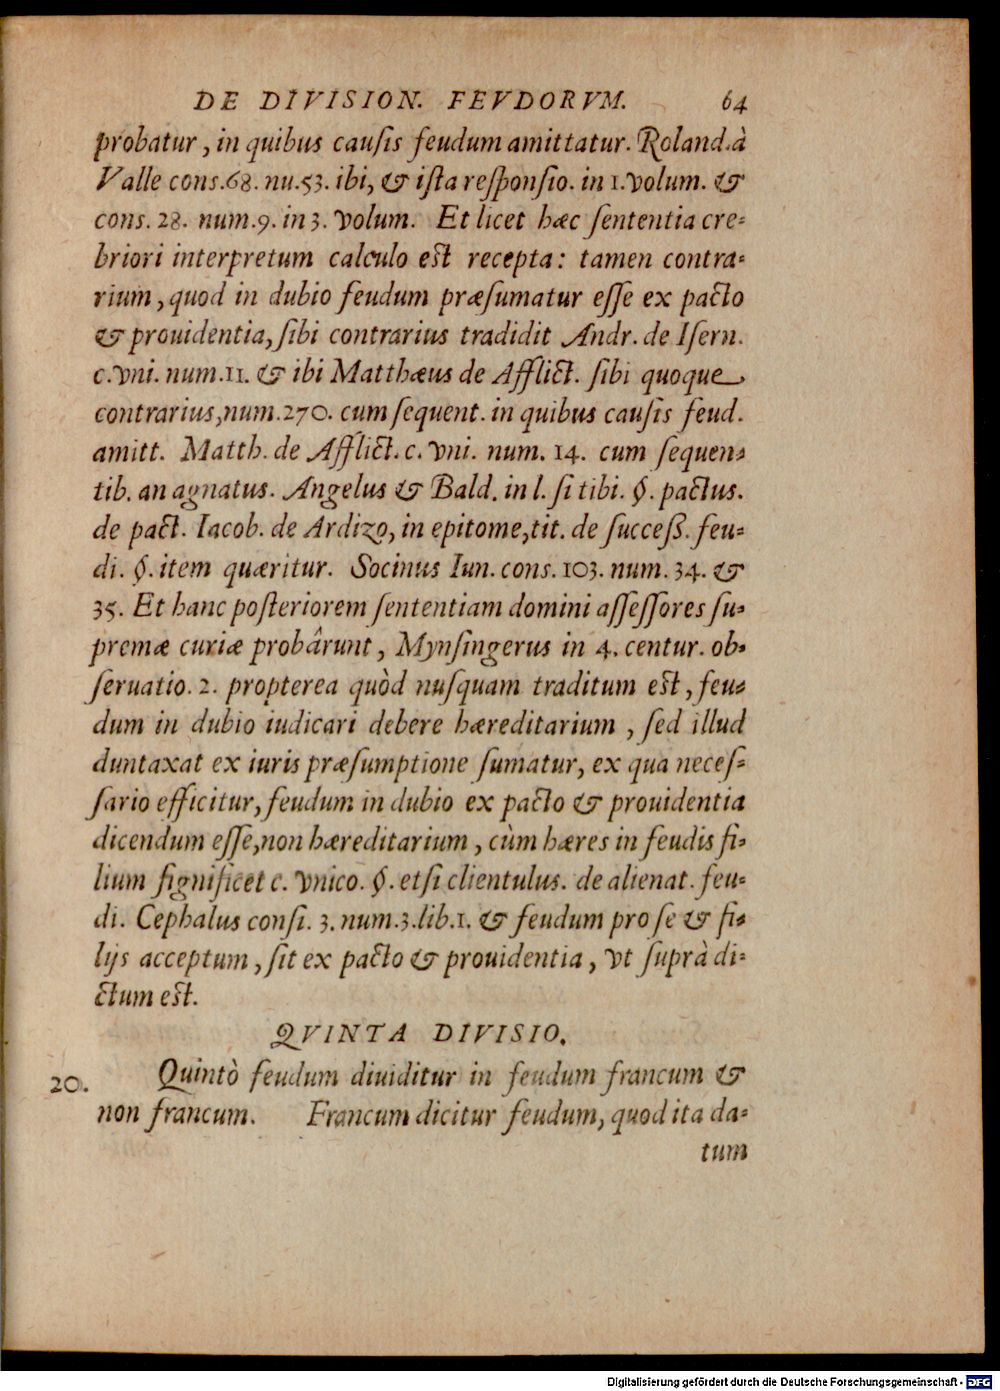 DE DIVISION. FEVDORVM. 64
probatur, in quibus cauſis feudum amittatur. Roland. à
Valle cons. 68. nu. 53. ibi, & iſta reſponſio. in 1. volum. &
cons. 28. num. 9. in 3. volum. Et licet hæc ſententia cre-
briori interpretum calculo est recepta: tamen contra-
rium, quod in dubio feudum præſumatur eſſe ex pacto
& prouidentia, ſibi contrarius tradidit Andr. de Iſern.
c. vni. num. 11. & ibi Matthæus de Afflict. ſibi quoque
contrarius, num. 270. cum ſequent. in quibus cauſis feud.
amitt. Matth. de Afflict. c. vni. num. 14. cum ſequen-
tib. an agnatus. Angelus & Bald. in l. ſi tibi. §. pactus.
de pact. Iacob. de Ardizo, in epitome, tit. de ſucceß. feu-
di. §. item quæritur. Socinus Iun. cons. 103. num. 34. &
35. Et hanc poſteriorem ſententiam domini aſſeſſores ſu-
premæ curiæ probârunt, Mynſingerus in 4. centur. ob-
ſeruatio. 2. propterea quòd nuſquam traditum est, feu-
dum in dubio iudicari debere hæreditarium, ſed illud
duntaxat ex iuris præſumptione ſumatur, ex qua neceſ-
ſario efficitur, feudum in dubio ex pacto & prouidentia
dicendum eſſe, non hæreditarium, cùm hæres in feudis fi-
lium ſignificet c. vnico. §. etſi clientulus. de alienat. feu-
di. Cephalus conſi. 3. num. 3. lib. 1. & feudum pro ſe & fi-
lijs acceptum, ſit ex pacto & prouidentia, vt ſuprà di-
ctum est.
QVINTA DIVISIO.
20. Quintò feudum diuiditur in feudum francum &
non francum. Francum dicitur feudum, quod ita da-
tum
Digitalisierung gefördert durch die Deutsche Forschungsgemeinschaft - DFG